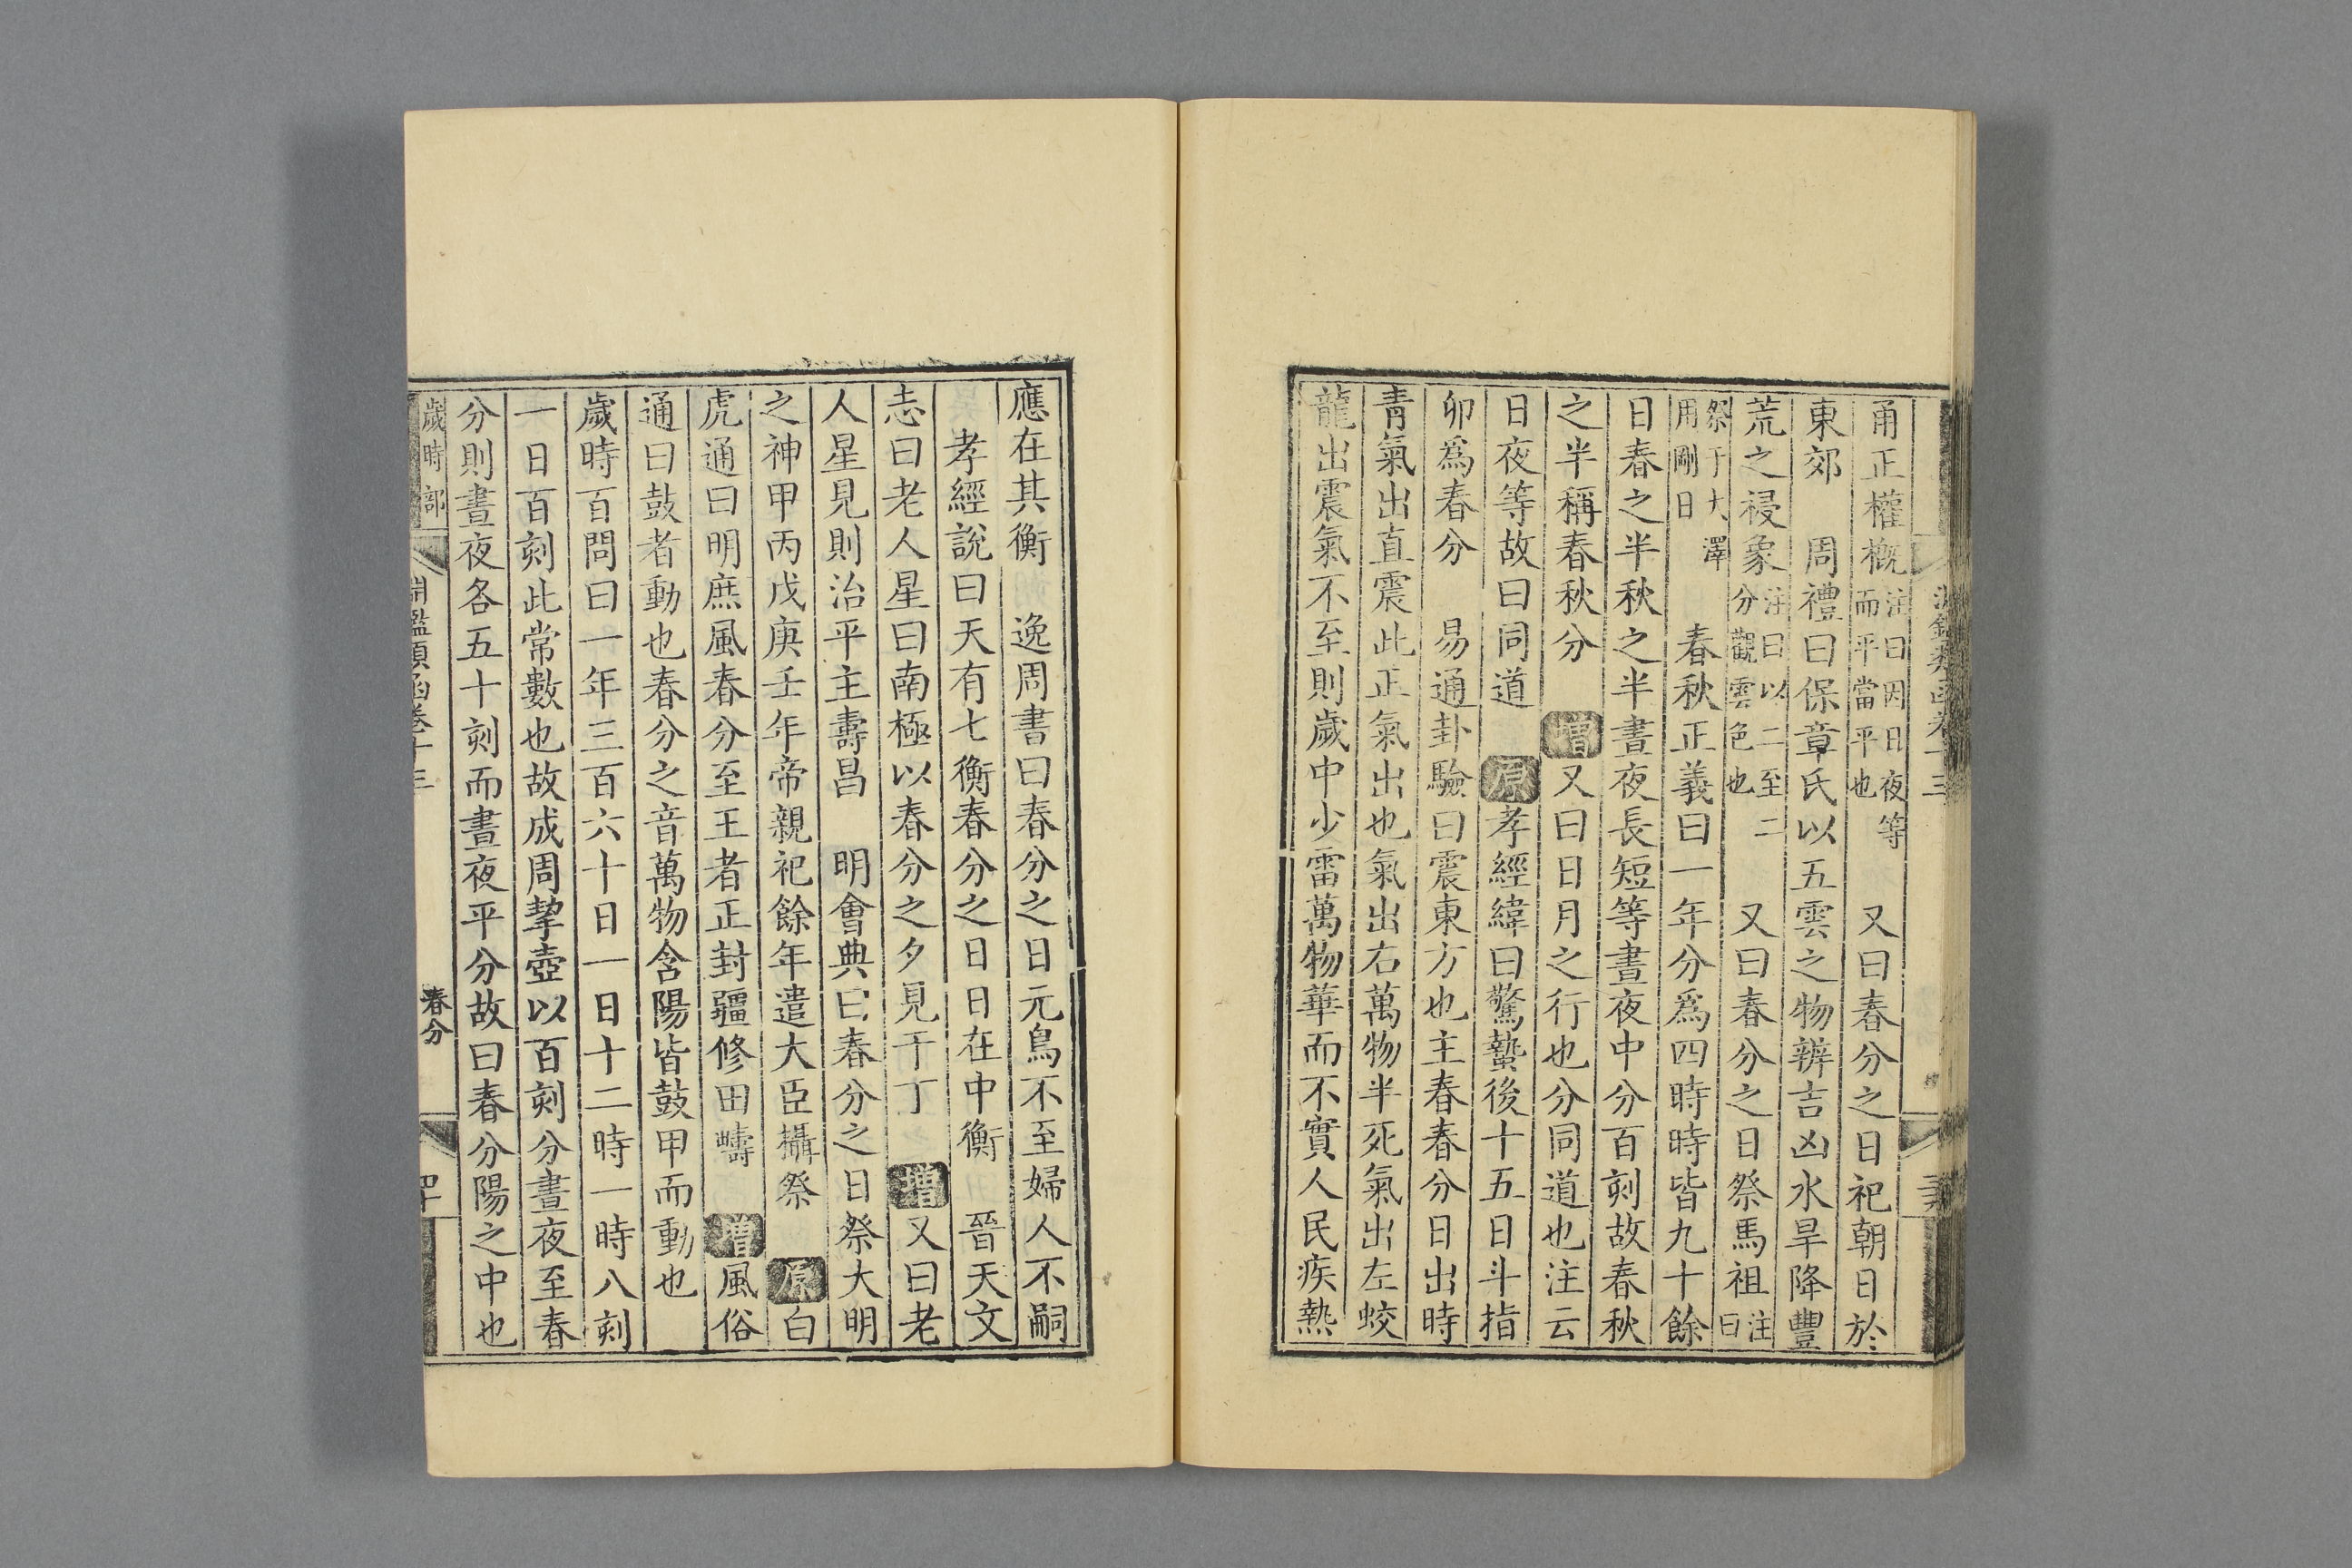 甬正權概注曰因日夜等而平當平也　又曰春分之日祀朝日於
東郊　周禮曰保章氏以五雲之物辨吉凶水旱降豐
荒之祲象注曰以二至二分觀雲色也　又曰春分之日祭馬祖注曰
祭于大澤用剛日　春秋正義曰一年分爲四時時皆九十餘
日春之半秋之半晝夜長短等晝夜中分百刻故春秋
之半稱春秋分　增又曰日月之行也分同道也注云
日夜等故曰同道　原孝經緯曰驚蟄後十五日斗指
卯爲春分　易通卦驗曰震東方也主春春分日出時
青氣出直震此正氣出也氣出右萬物半死氣出左蛟
龍出震氣不至則歲中少雷萬物華而不實人民疾熱
應在其衡　逸周書曰春分之日元鳥不至婦人不嗣
孝經說曰天有七衡春分之日日在中衡　晉天文
志曰老人星曰南極以春分之夕見于丁　增又曰老
人星見則治平主壽昌　明會典曰春分之日祭大明
之神甲丙戊庚壬年帝親祀餘年遣大臣攝祭　原白
虎通曰明庶風春分至王者正封疆修田疇　增風俗
通曰鼓者動也春分之音萬物含陽皆鼓甲而動也
歲時百問曰一年三百六十日一日十二時一時八刻
一日百刻此常數也故成周挈壺以百刻分晝夜至春
分則晝夜各五十刻而晝夜平分故曰春分陽之中也
歲時部　淵鑑類函卷十三　春分